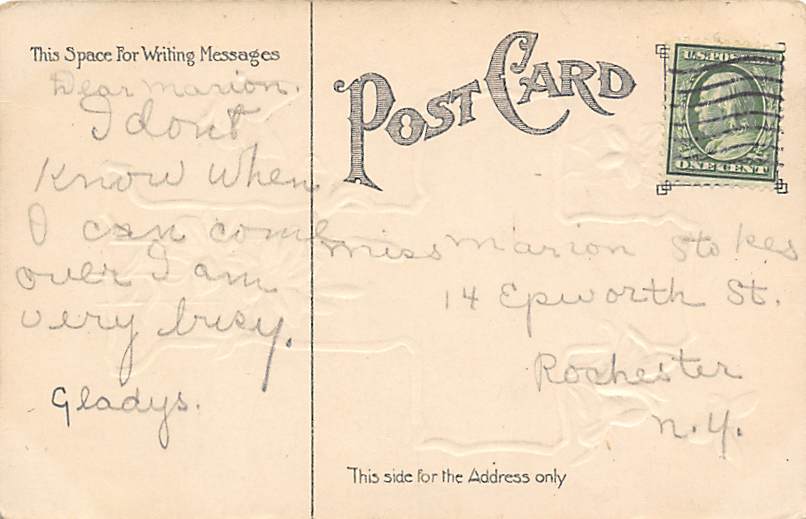 This Space For Writing Messages
Dear Marion.
I dont
know when
I can come
over I am
very busy.
Gladys.
POST CARD
U.S. POSTAGE
ONE CENT
Miss Marion Stokes
14 Epworth St.
Rochester
N.Y.
This side for the Address only